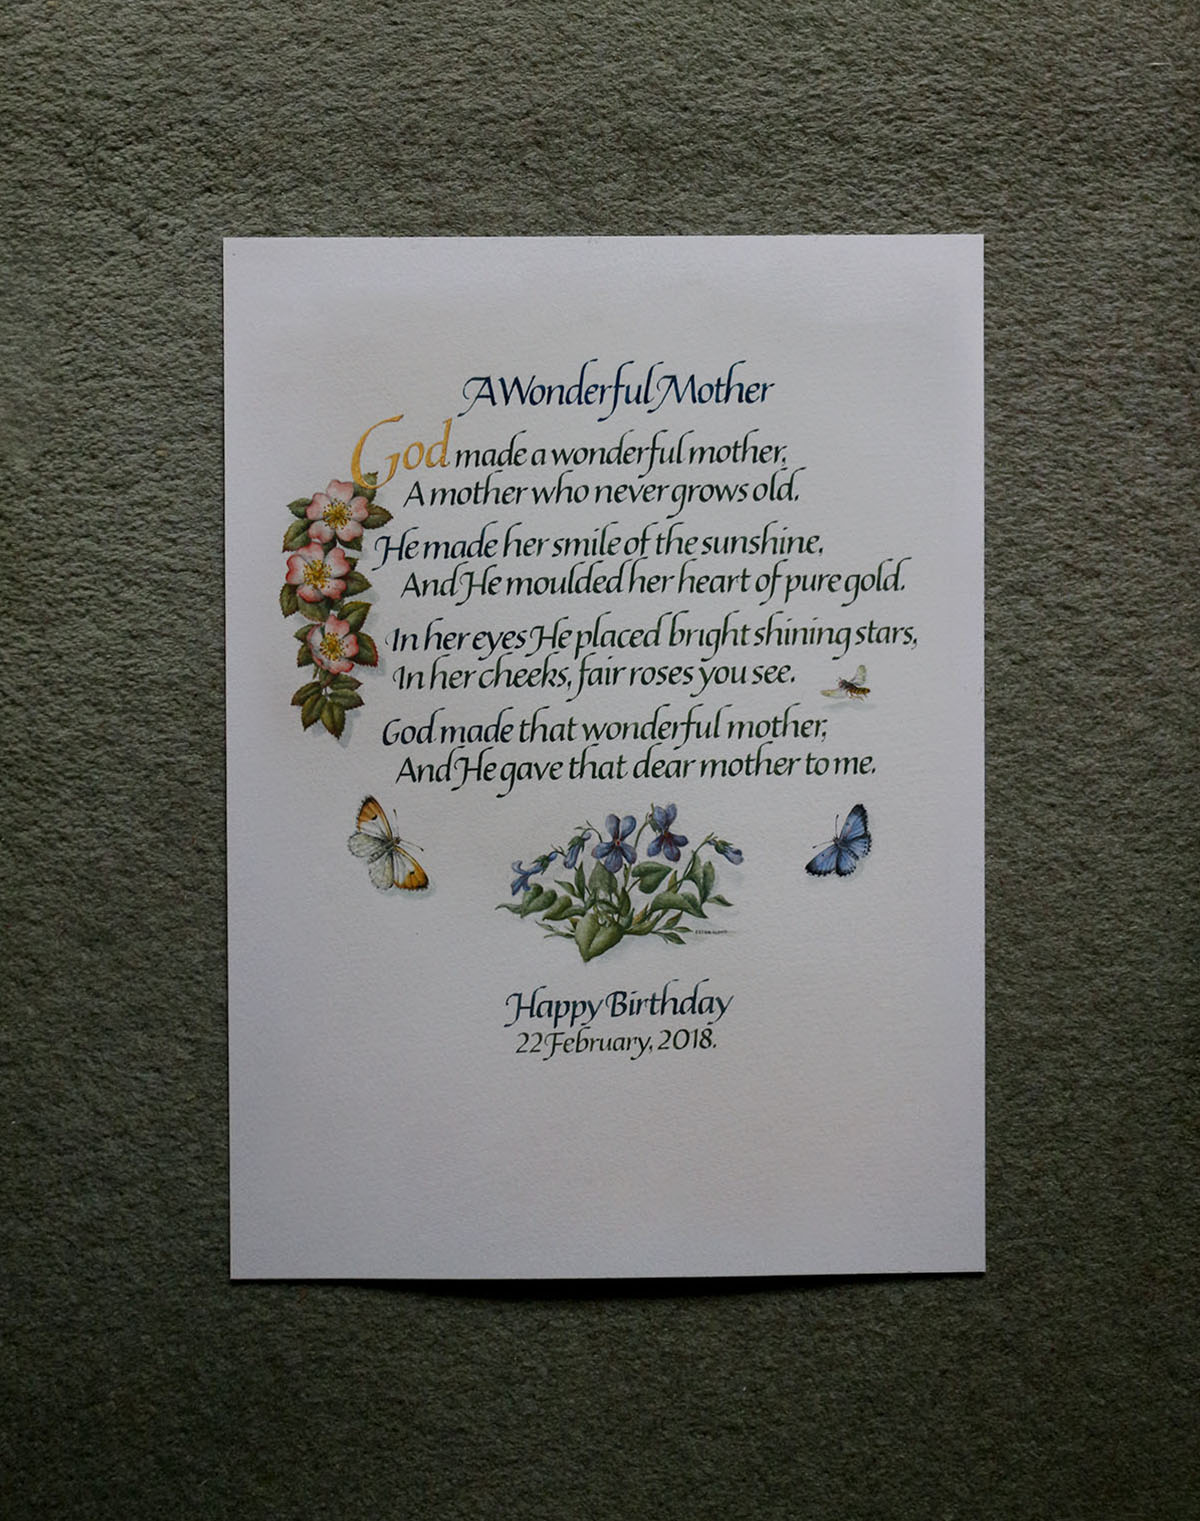 A Wonderful Mother
God made a wonderful mother,
A mother who never grows old.
He made her smile of the sunshine,
And He moulded her heart of pure gold.
In her eyes He placed bright shining stars,
In her cheeks, fair roses you see.
God made that wonderful mother,
And He gave that dear mother to me.
Happy Birthday
22 February, 2018.